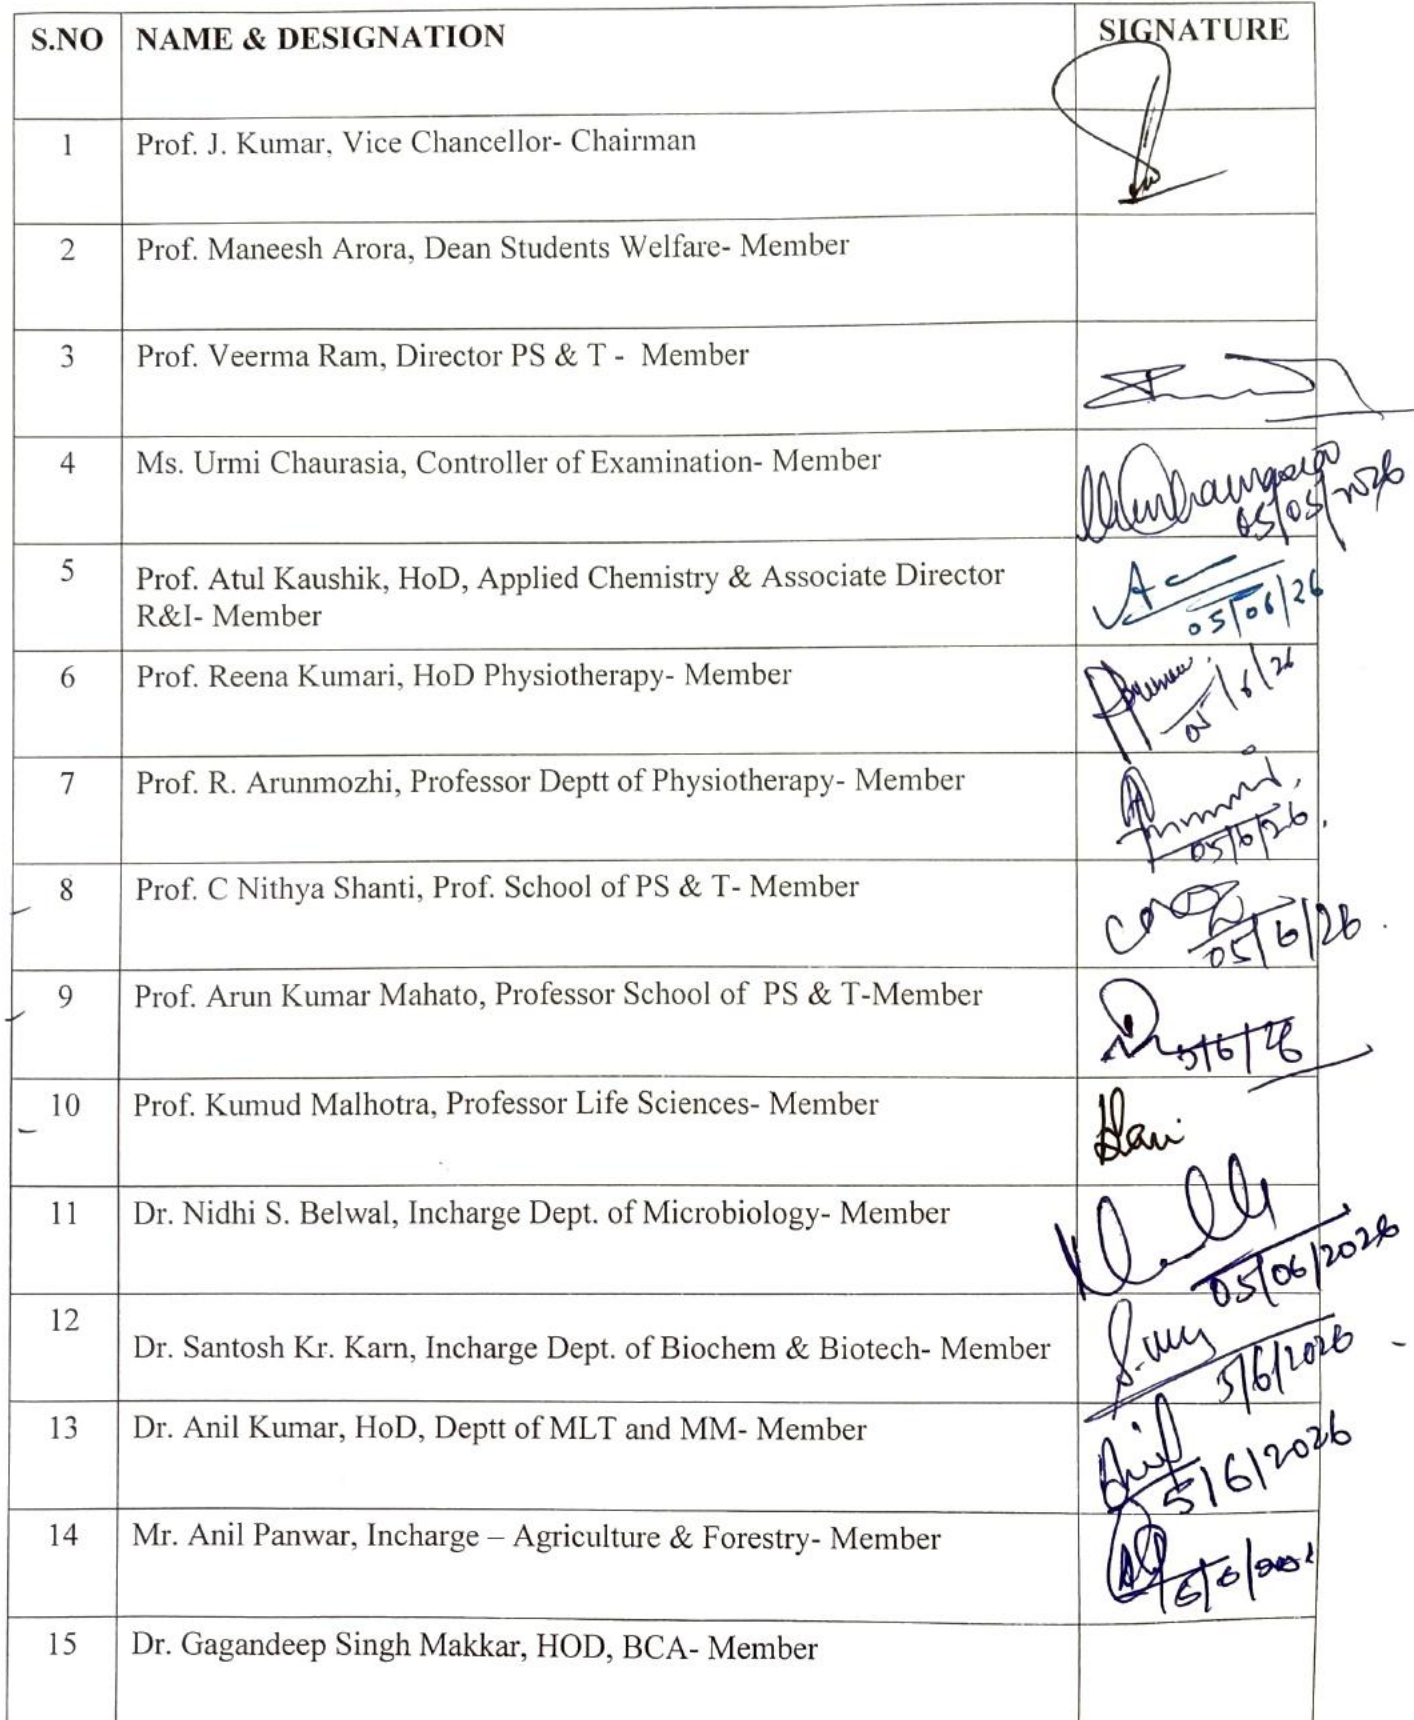 S.NO NAME & DESIGNATION SIGNATURE
1 Prof. J. Kumar, Vice Chancellor- Chairman
2 Prof. Maneesh Arora, Dean Students Welfare- Member
3 Prof. Veerma Ram, Director PS & T - Member
4 Ms. Urmi Chaurasia, Controller of Examination- Member
05/05/2026
5 Prof. Atul Kaushik, HoD, Applied Chemistry & Associate Director
R&I- Member
05/06/26
6 Prof. Reena Kumari, HoD Physiotherapy- Member
05/6/26
7 Prof. R. Arunmozhi, Professor Deptt of Physiotherapy- Member
05/6/26.
8 Prof. C Nithya Shanti, Prof. School of PS & T- Member
05/6/26.
9 Prof. Arun Kumar Mahato, Professor School of PS & T-Member
5/6/26
10 Prof. Kumud Malhotra, Professor Life Sciences- Member
11 Dr. Nidhi S. Belwal, Incharge Dept. of Microbiology- Member
05/06/2026
12 Dr. Santosh Kr. Karn, Incharge Dept. of Biochem & Biotech- Member
5/6/2026
13 Dr. Anil Kumar, HoD, Deptt of MLT and MM- Member
5/6/2026
14 Mr. Anil Panwar, Incharge – Agriculture & Forestry- Member
15 Dr. Gagandeep Singh Makkar, HOD, BCA- Member